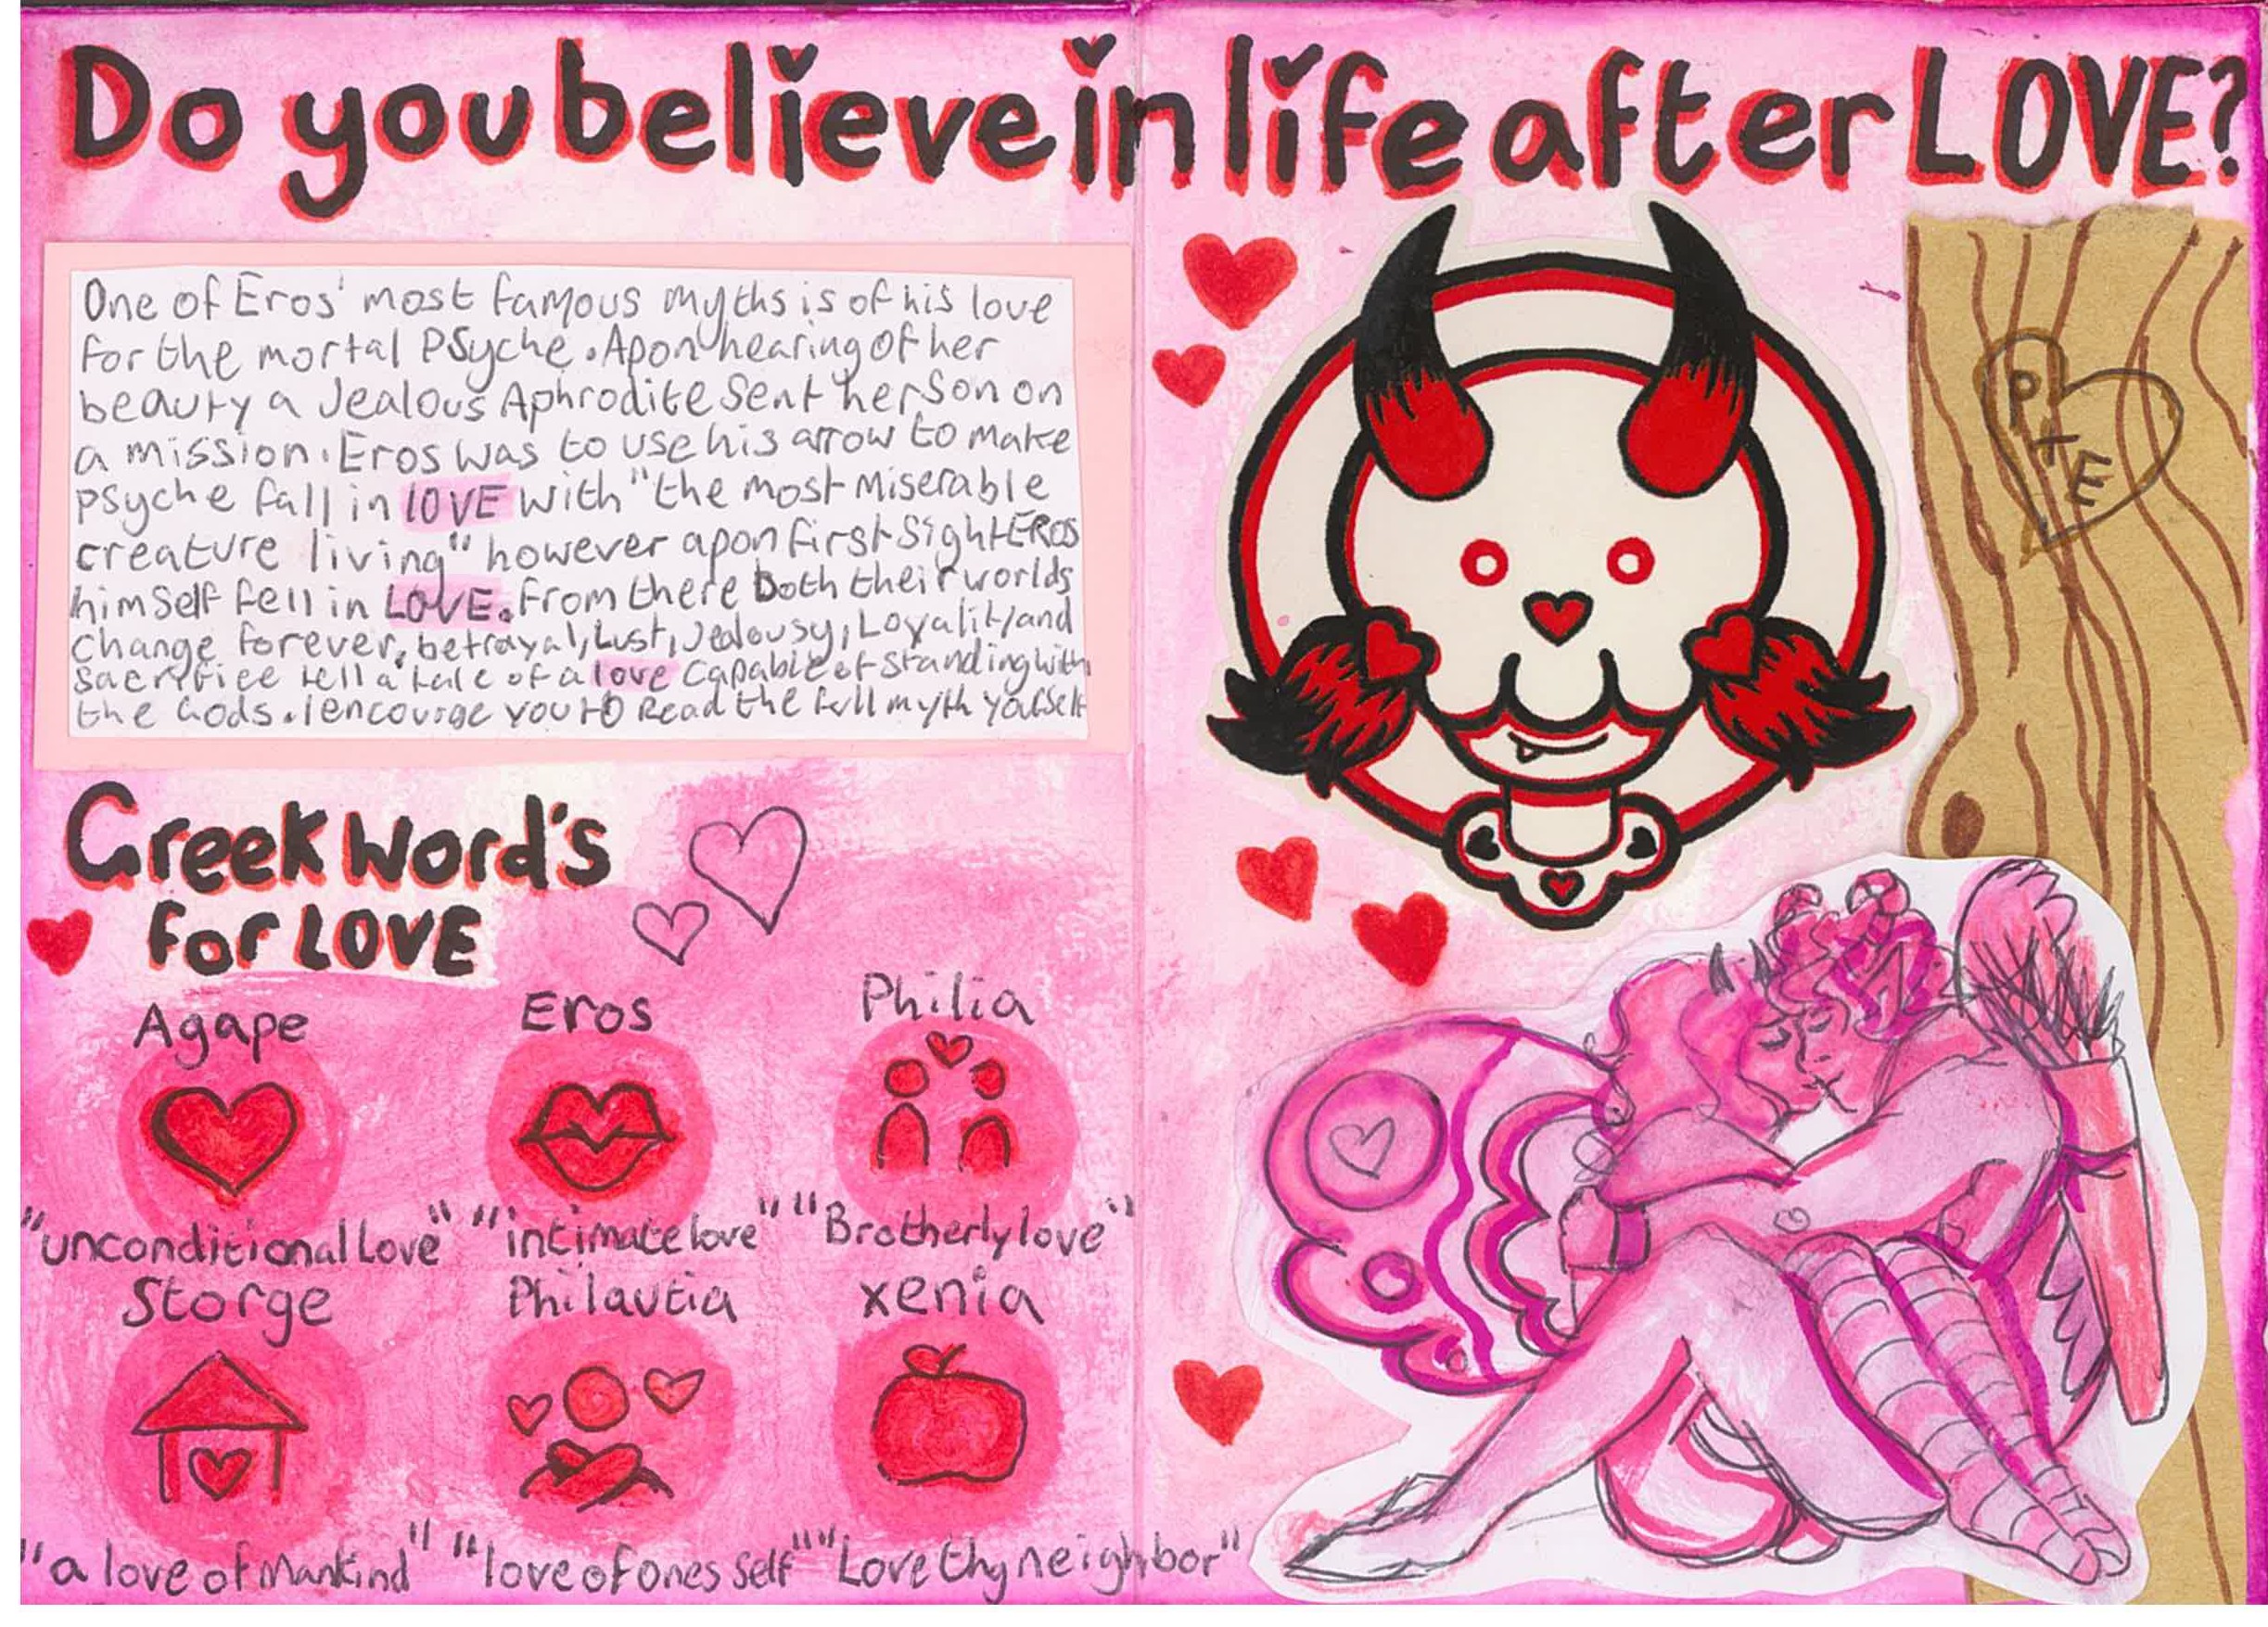 Do you believe in life after LOVE?
One of Eros' most famous myths is of his love
for the mortal Psyche. Apon hearing of her
beauty a Jealous Aphrodite sent her son on
a mission. Eros was to use his arrow to make
psyche fall in lOVE with "the most miserable
creature living" however apon first sight EROS
himself fell in LOVE. From there both their worlds
change forever, betrayal, Lust, Jealousy, Loyality and
sacrifice tell a tale of a love capable of standing with
the Gods. I encourge you to Read the full myth yourself
P + E
Greek Word's
for LOVE
Agape
Eros
Philia
"unconditional Love"
"intimate love"
"Brotherly love"
Storge
Philautia
xenia
"a love of Mankind"
"love of ones self"
"Love thy neighbor"